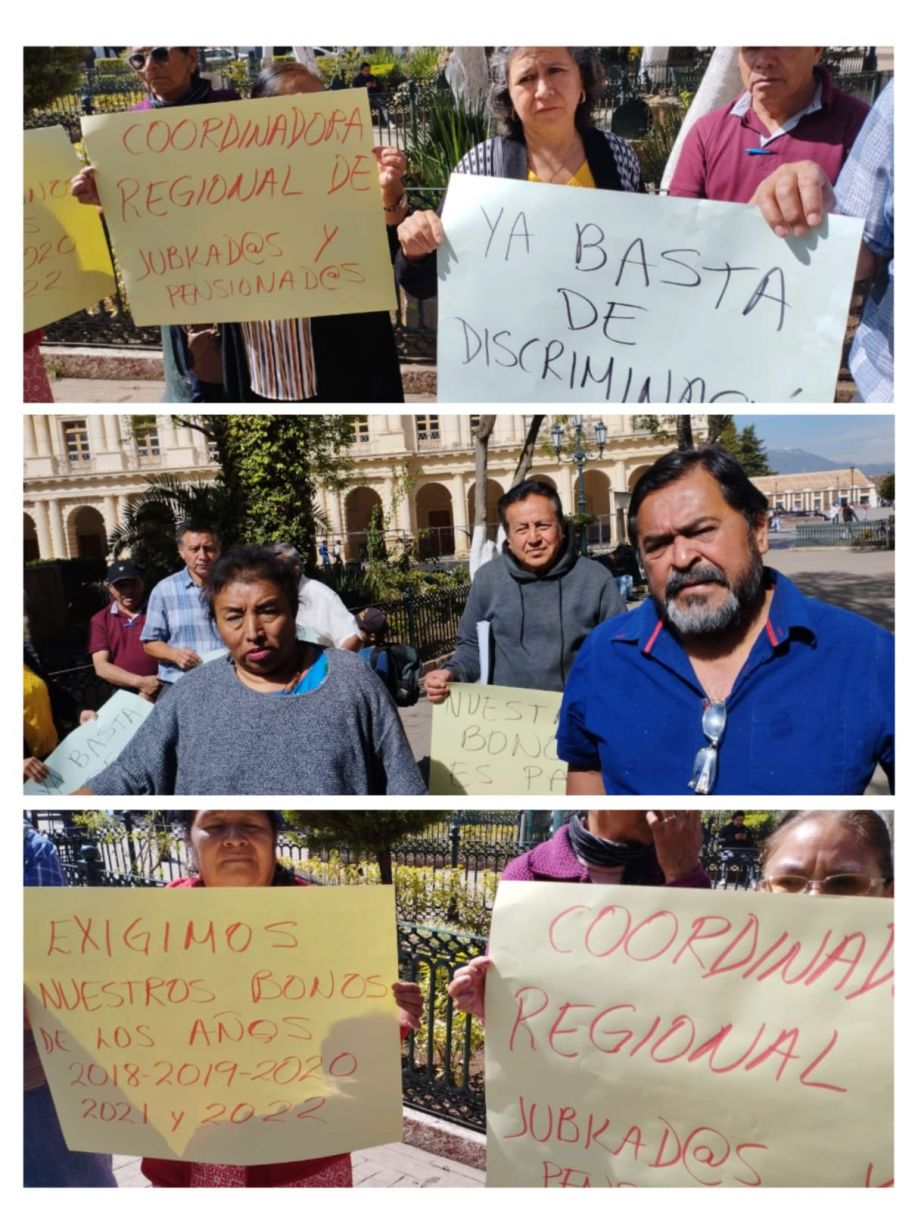 COORDINADORA
REGIONAL DE
JUBKAD@S Y
PENSIONAD@S
020
22
YA BASTA
DE
BASTA
NUEST
BONO
ES PA
EXIGIMOS
NUESTROS BONOS
DE LOS AÑOS
2018-2019-2020
2021 y 2022
COORDINAD
REGIONAL
JUBKAD@S Y